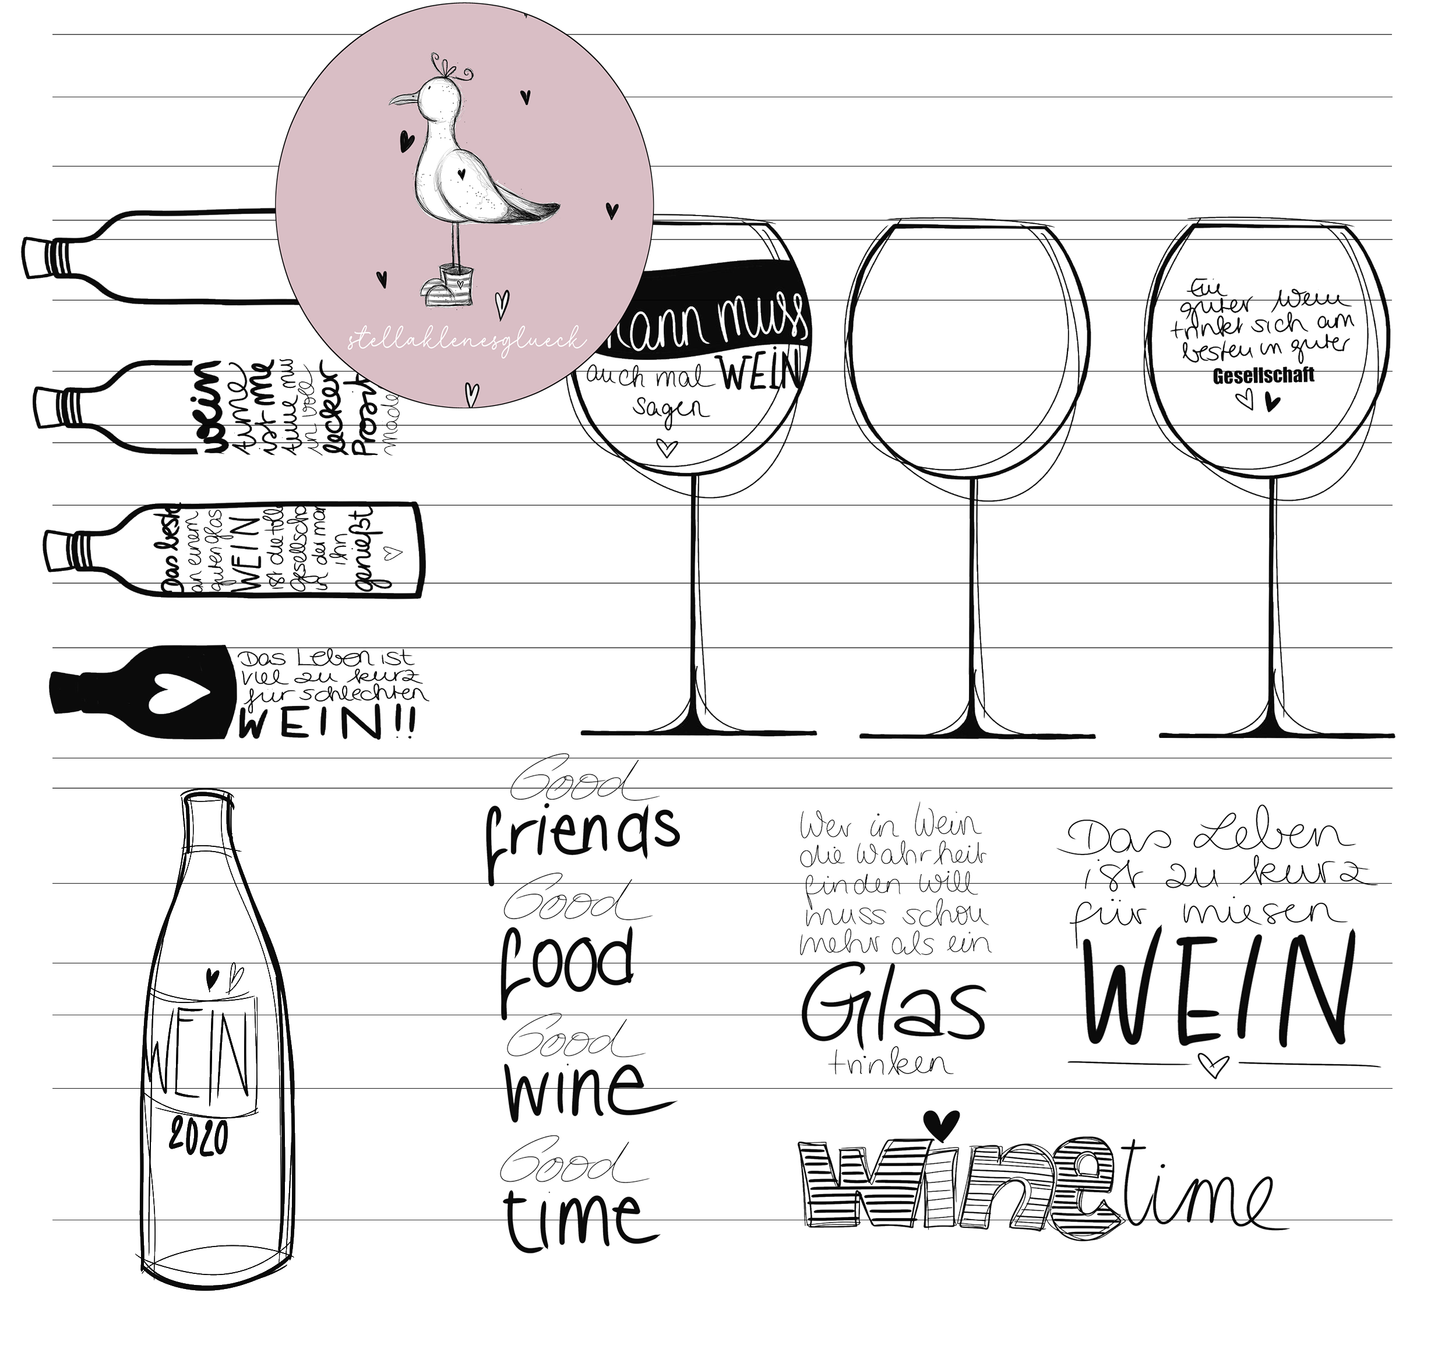 stellaklenesglueck
kann muss
auch mal WEIN
sagen
Ein
guter Wein
trinkt sich am
besten in guter
Gesellschaft
wein
time
ist me
time nur
in voll
lecker
Prosit
made
Das beste
an einem
guten Glas
WEIN
ist die tolle
Gesellscha
in der man
ihn
genießt
Das Leben ist
viel zu kurz
für schlechten
WEIN!!
WEIN
2020
Good
friends
Good
food
Good
wine
Good
time
Wer in Wein
die Wahrheit
finden will
muss schon
mehr als ein
Glas
trinken
Das Leben
ist zu kurz
für miesen
WEIN
wine time